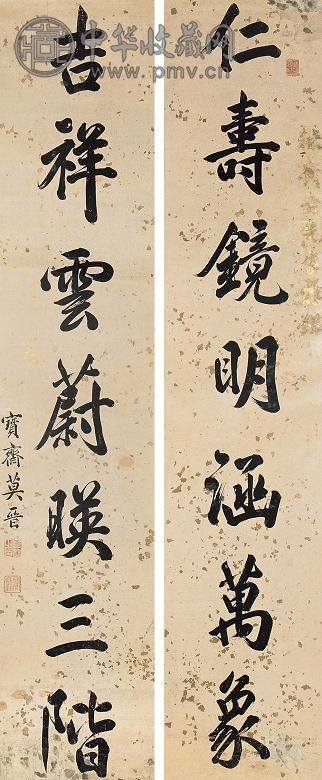 仁壽鏡明涵萬象
吉祥雲蔚暎三階
寶齋莫晉
中华收藏网
www.pmv.cn